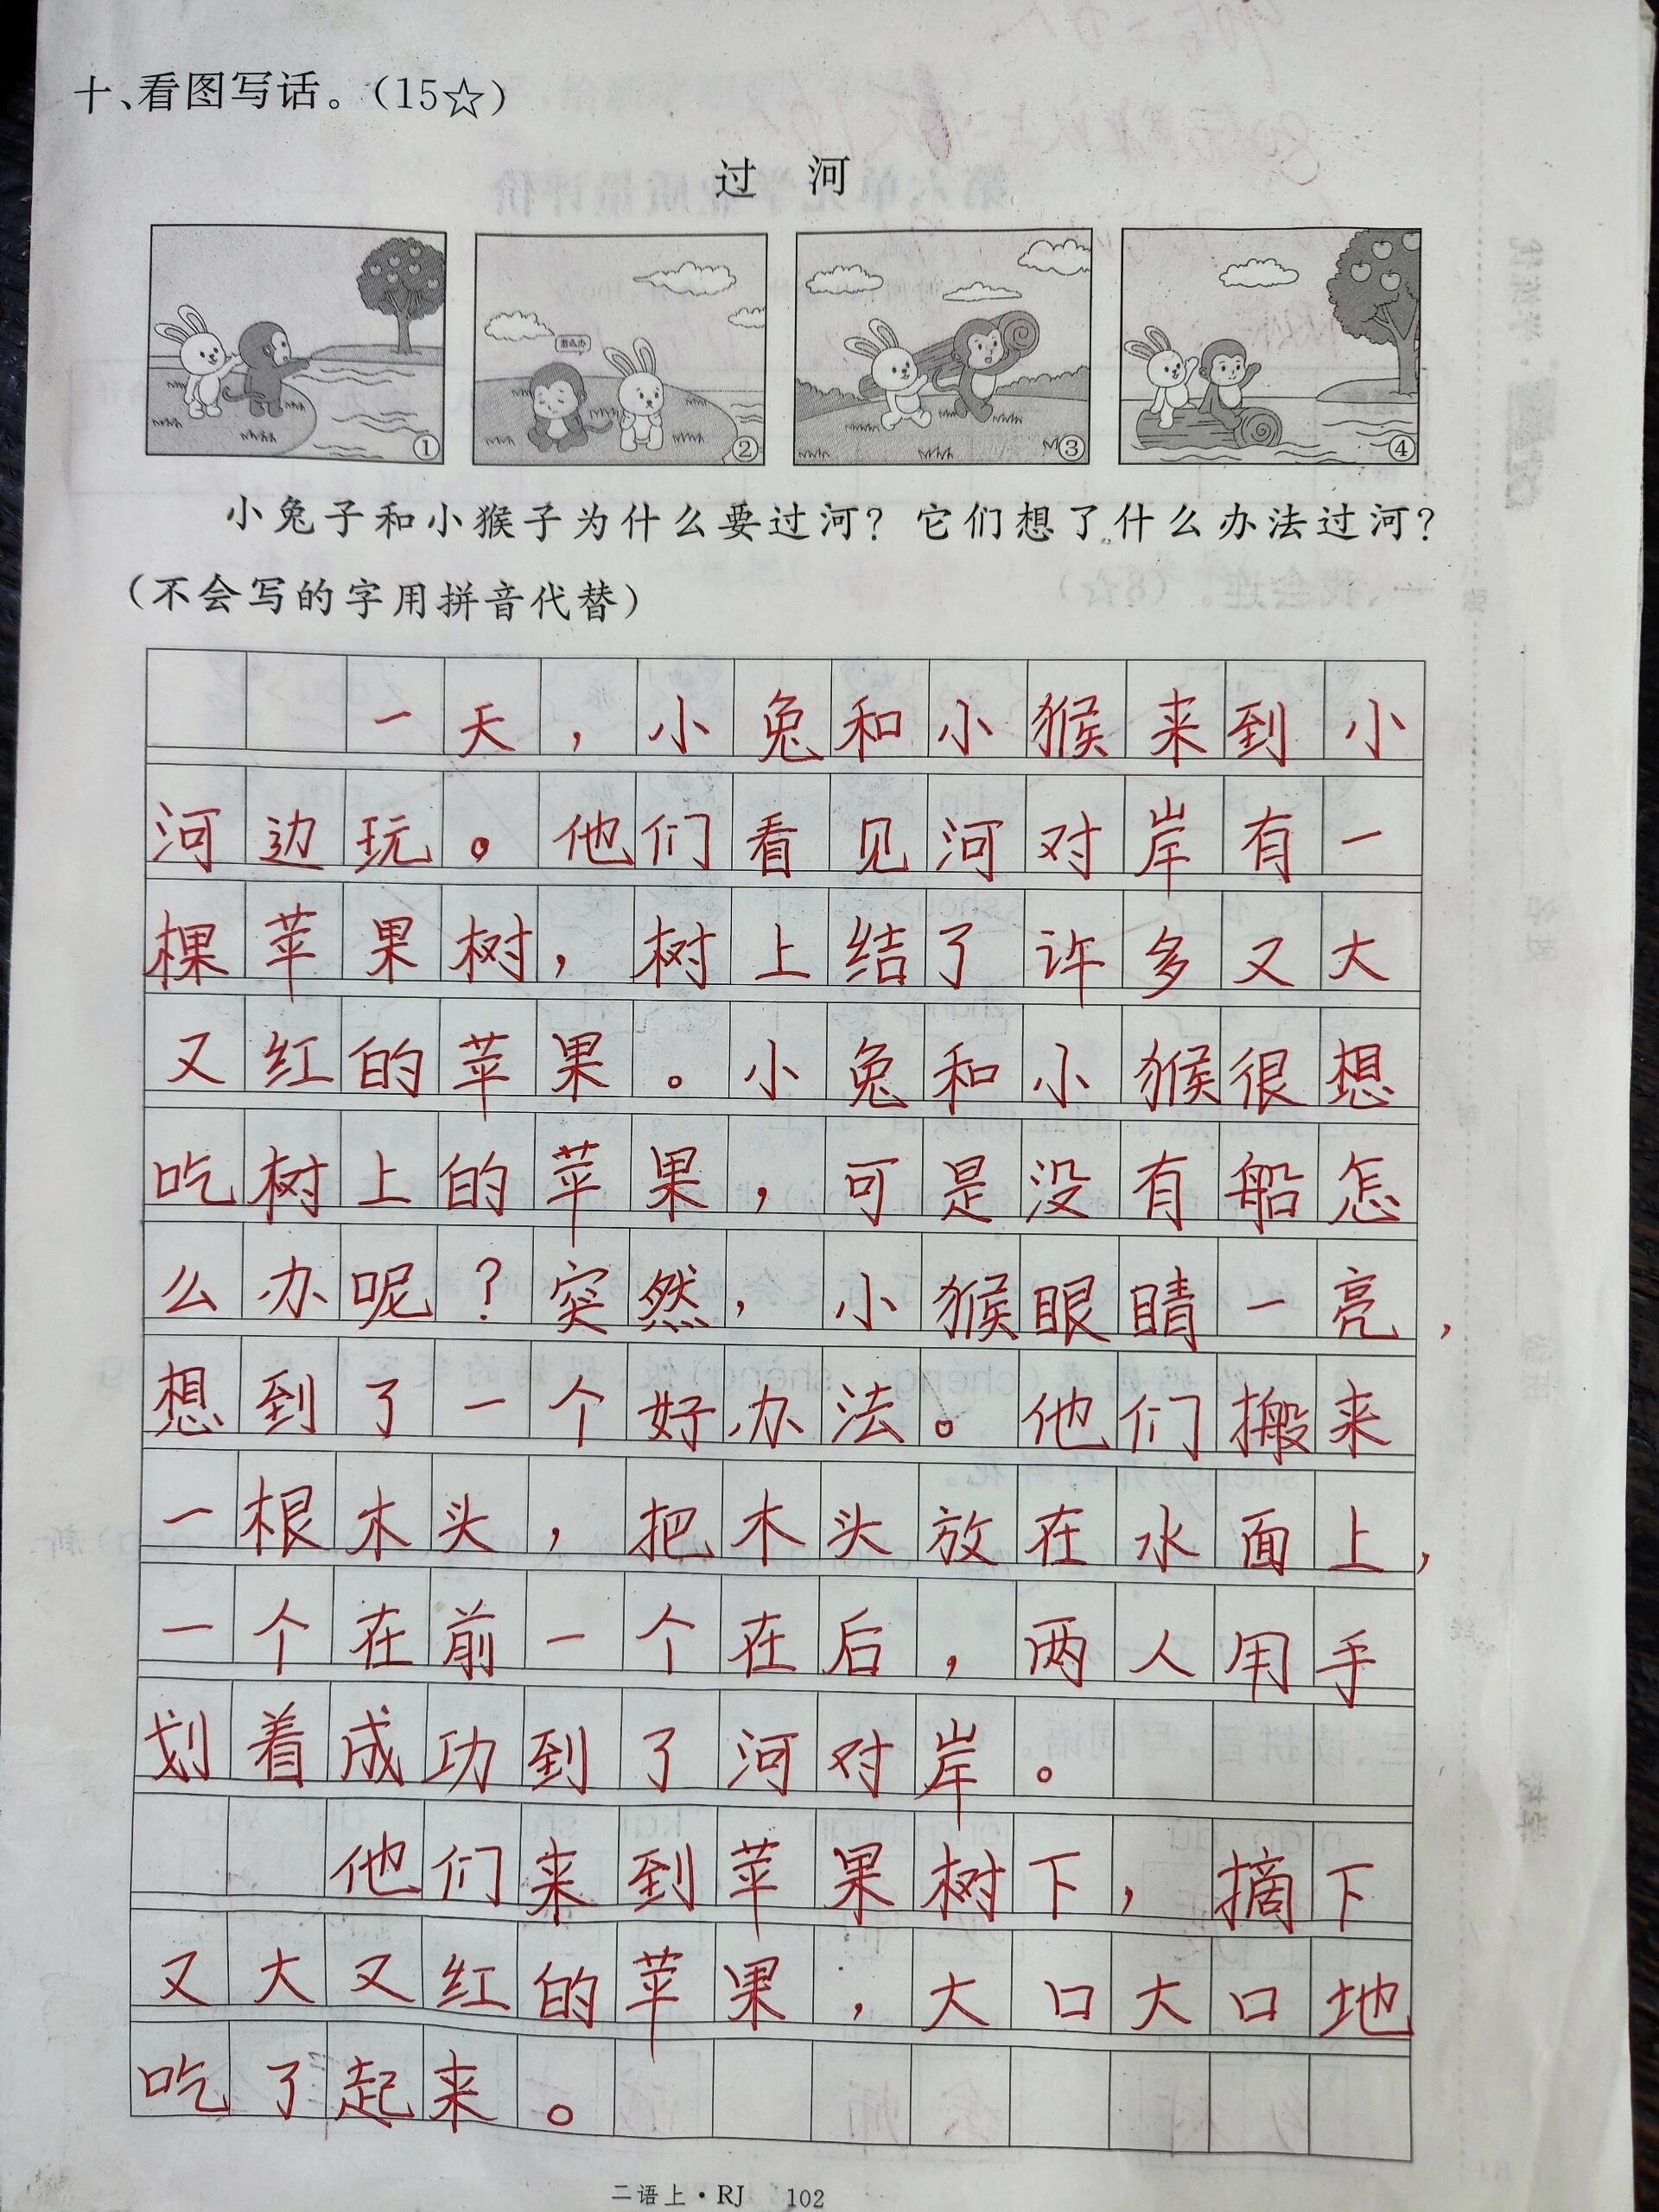 十、看图写话。（15☆）
过 河
怎么办
① ② ③ ④
小兔子和小猴子为什么要过河？它们想了什么办法过河？
（不会写的字用拼音代替）
一天，小兔和小猴来到小
河边玩。他们看见河对岸有一
棵苹果树，树上结了许多又大
又红的苹果。小兔和小猴很想
吃树上的苹果，可是没有船怎
么办呢？突然，小猴眼睛一亮，
想到了一个好办法。他们搬来
一根木头，把木头放在水面上，
一个在前一个在后，两人用手
划着成功到了河对岸。
他们来到苹果树下，摘下
又大又红的苹果，大口大口地
吃了起来。
二语上·RJ 102